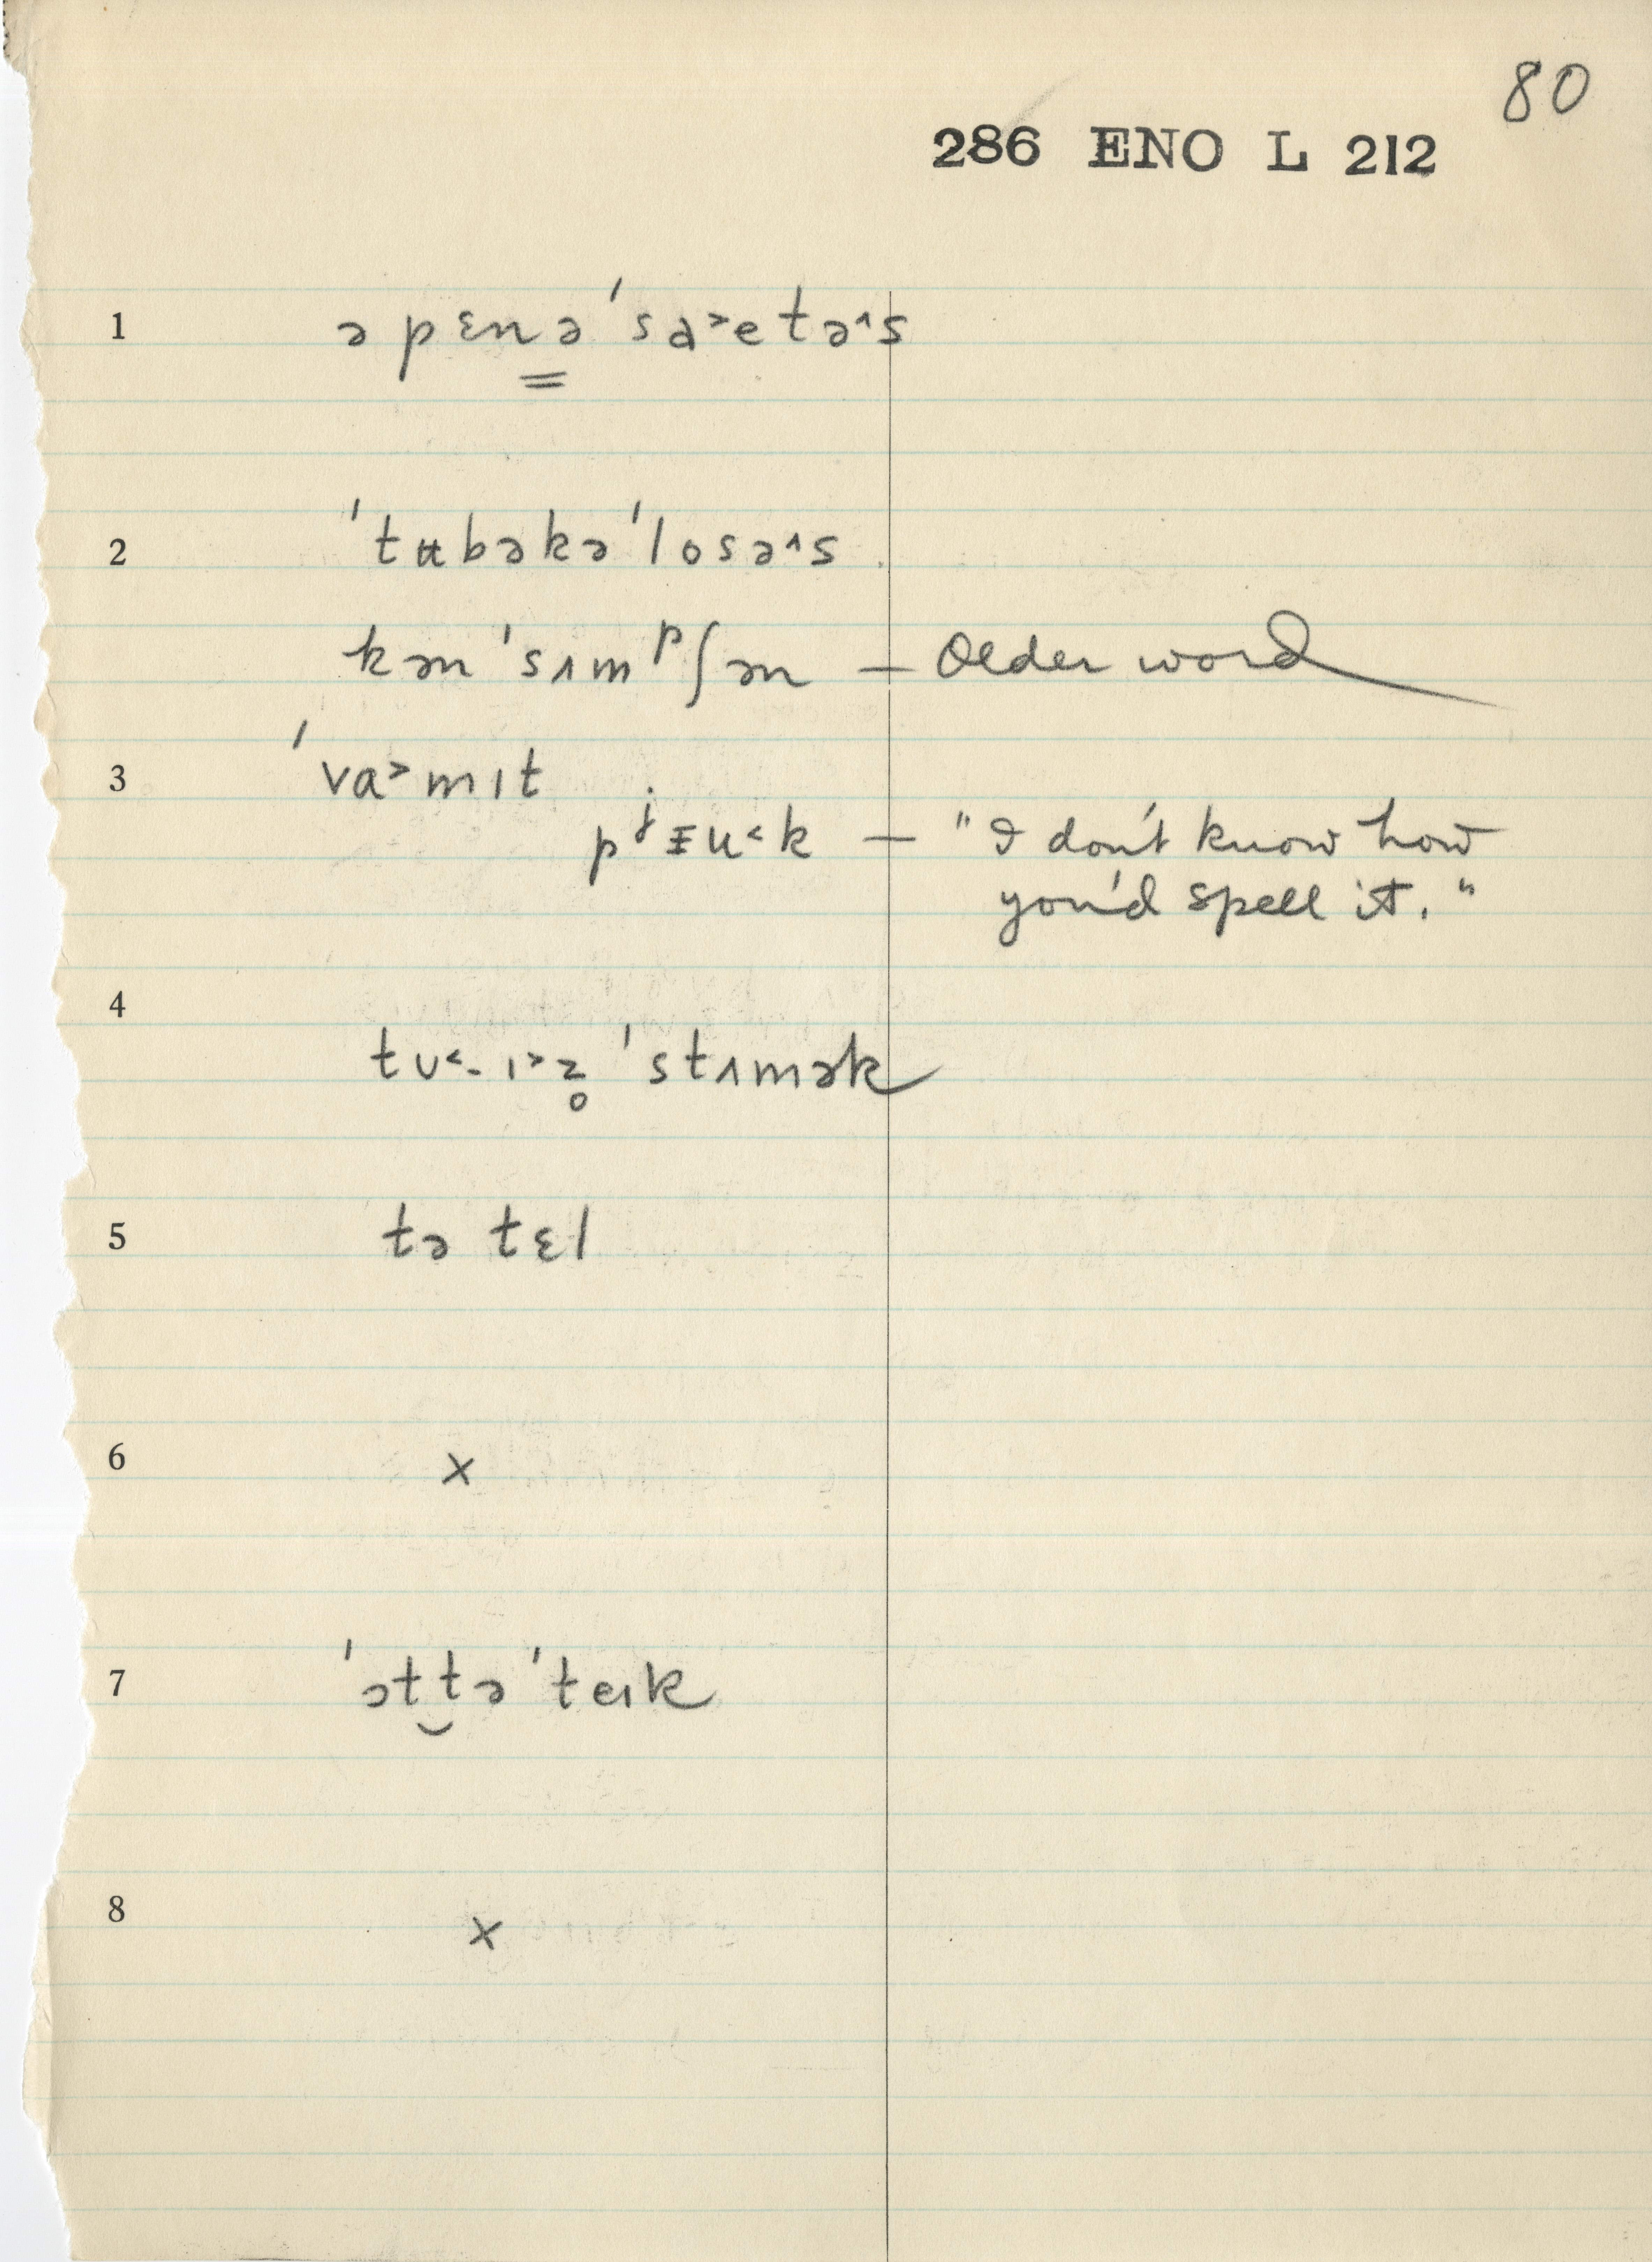 80
286 ENO L 212
1 əpɛnə'sa˃etə˄s
2 'tʉbəkə'losə˄s
kən'sʌmᵖʃən – Older word
3 'va˃mɪt
pʲɪu˂k – "I don't know how
you'd spell it."
4 tʊ˂-ɪ˃z̥ 'stʌmək
5 tə tɛl
6 x
7 'ət‿tə 'teɪk
8 x